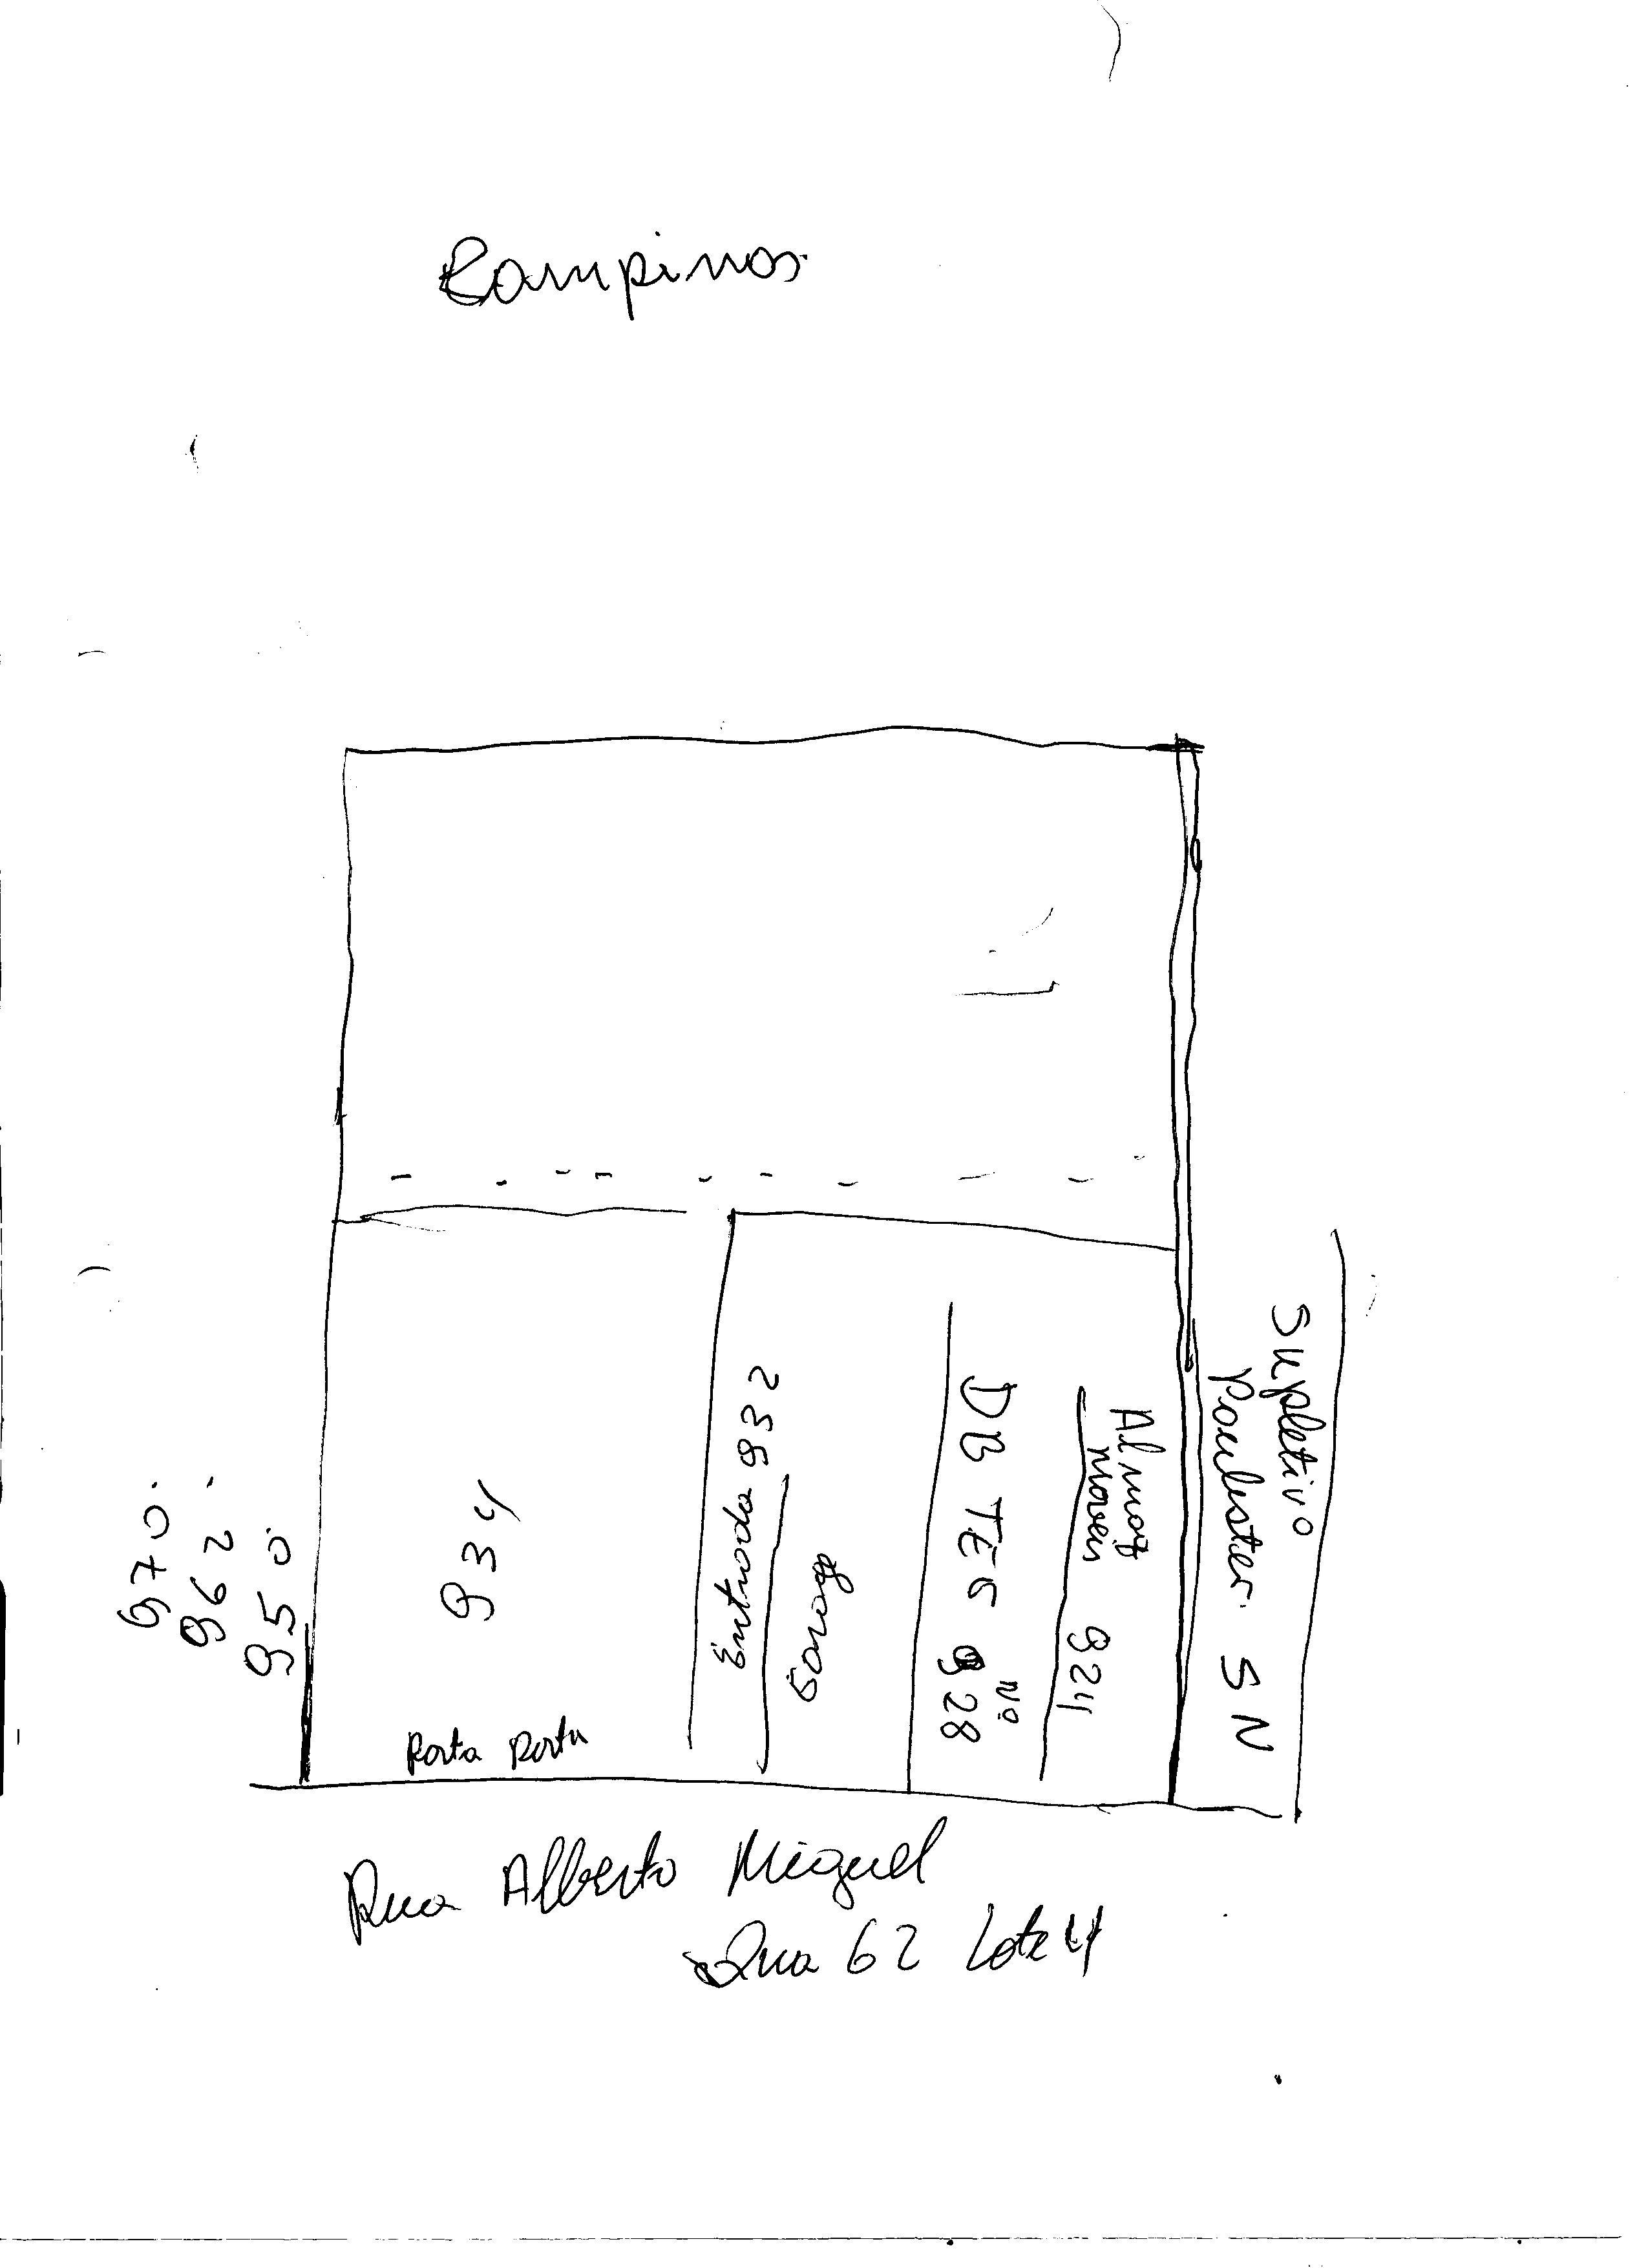 Campinas
970
962
950
934
Porta Porta
Entrada 932
Garag
DB TEC 928
Nº
Almag
moveis 924
Supletivo
Paulister SN
Rua Alberto Miguel
Qua 62 Lote 4